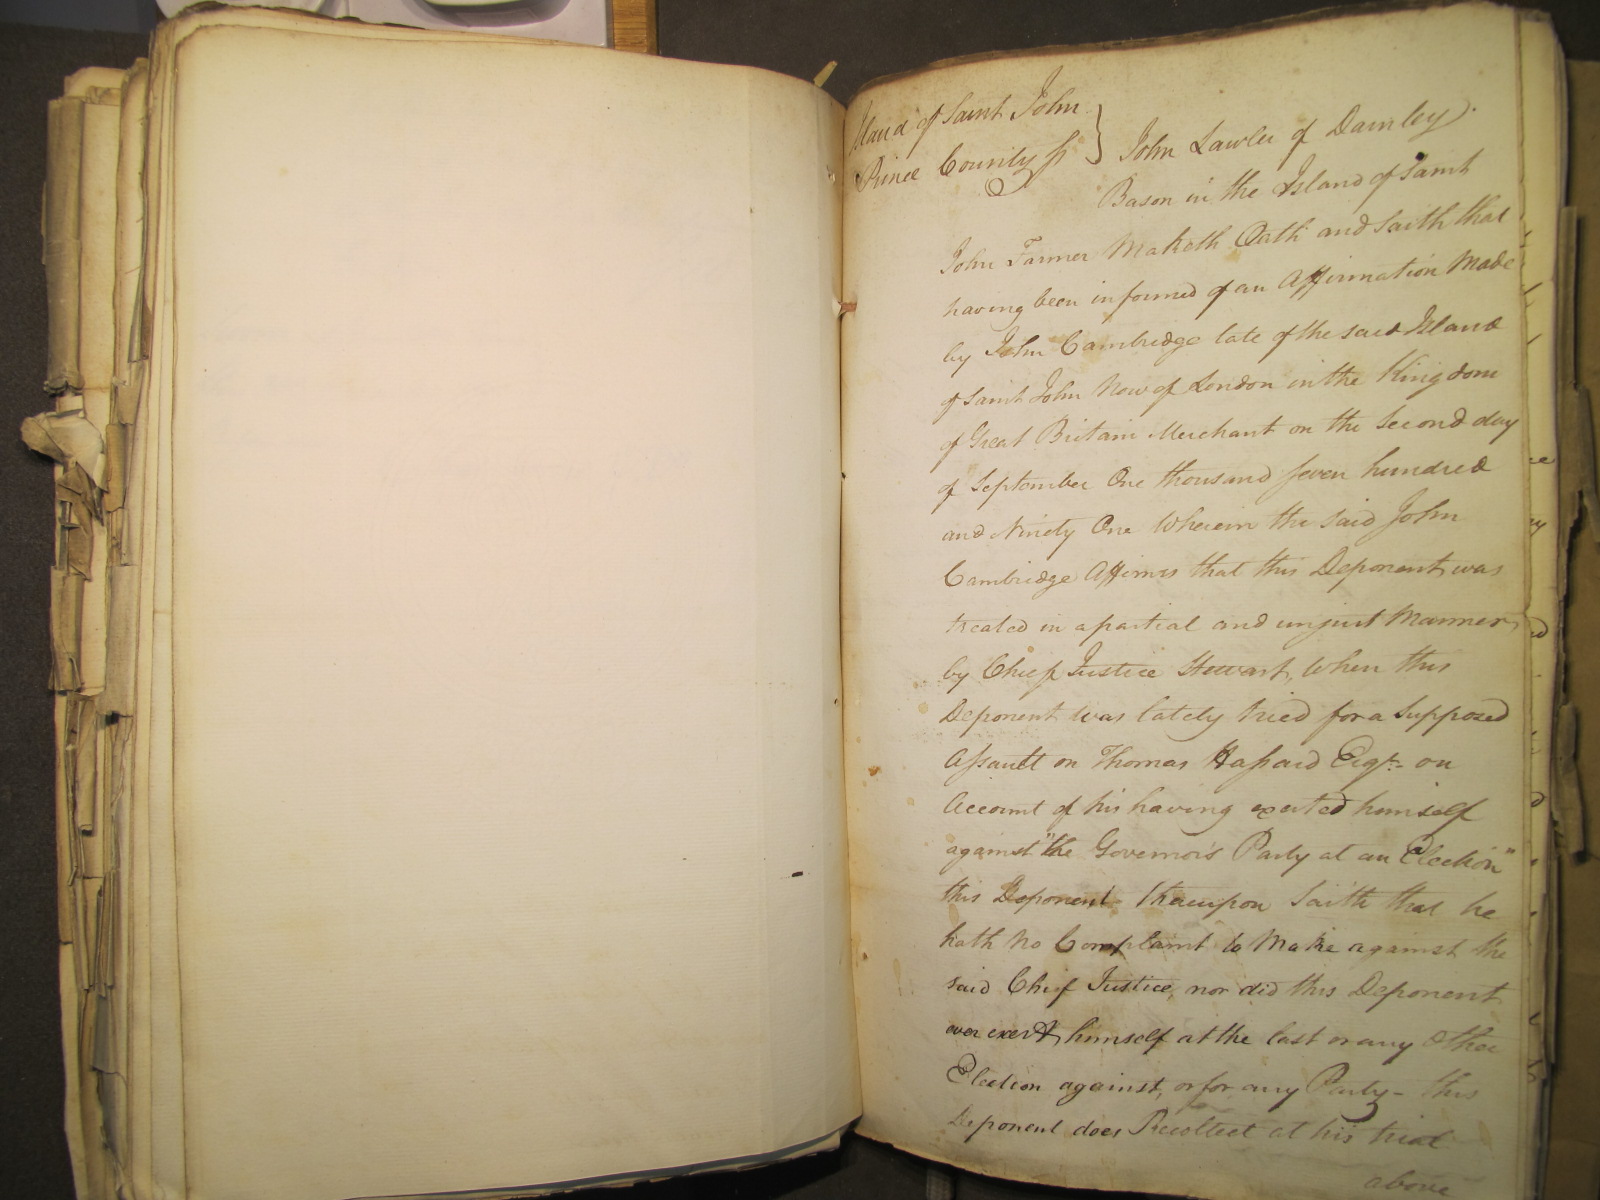 Island of Saint John
Prince County ss } John Lawler of Darnley
Bason in the Island of Saint
John Farmer Maketh Oath and Saith that
having been informed of an Affirmation Made
by John Cambridge late of the said Island
of Saint John Now of London in the Kingdom
of Great Britain Merchant on the Second day
of September One thousand Seven hundred
and Ninety One Wherein the said John
Cambridge Affirms that this Deponent was
treated in a partial and unjust Manner
by Chief Justice Stewart, When this
Deponent was lately tried for a Supposed
Assault on Thomas Hassard Esqr. on
Account of his having exerted himself
against "the Governor's Party at an Election"
this Deponent thereupon Saith that he
hath No Complaint to Make against the
said Chief Justice, nor did this Deponent
ever exert himself at the last or any Other
Election against, or for any Party - this
Deponent does Recollect at his trial
above